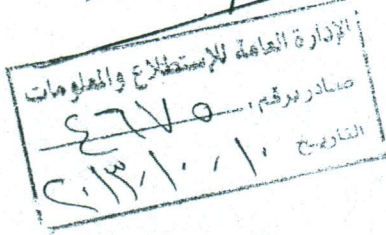 الإدارة العامة للإستطلاع والمعلومات
صادر برقم، ٤٦٧٥
التاريخ ٢٠١٣/١٠/١٠